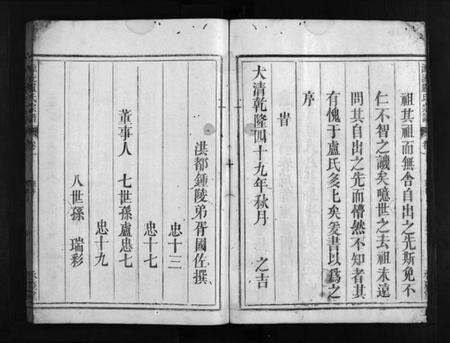 祖其祖而無舍自出之先斯免不
仁不智之譏矣噫世之去祖未遠
問其自出之先而懵然不知者其
有愧于盧氏多也矣爰書以為之
序
旹
大清乾隆四十九年秋月 之吉
洪都鍾陵弟胥國佐撰
忠十三
董事人 七世孫盧忠七
忠十七
忠十九
八世孫 瑞彩